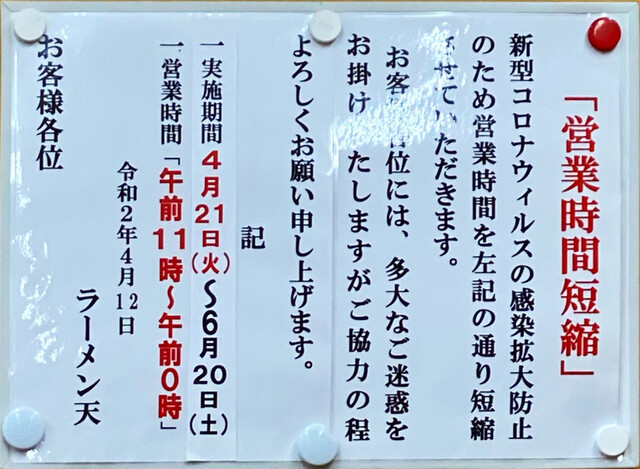 「営業時間短縮」
新型コロナウィルスの感染拡大防止
のため営業時間を左記の通り短縮
せていただきます。
お客 位には、多大なご迷惑を
お掛け たしますがご協力の程
よろしくお願い申し上げます。
記
一実施期間 4月21日(火)〜6月20日(土)
一営業時間「午前11時〜午前0時」
令和2年4月12日
ラーメン天
お客様各位